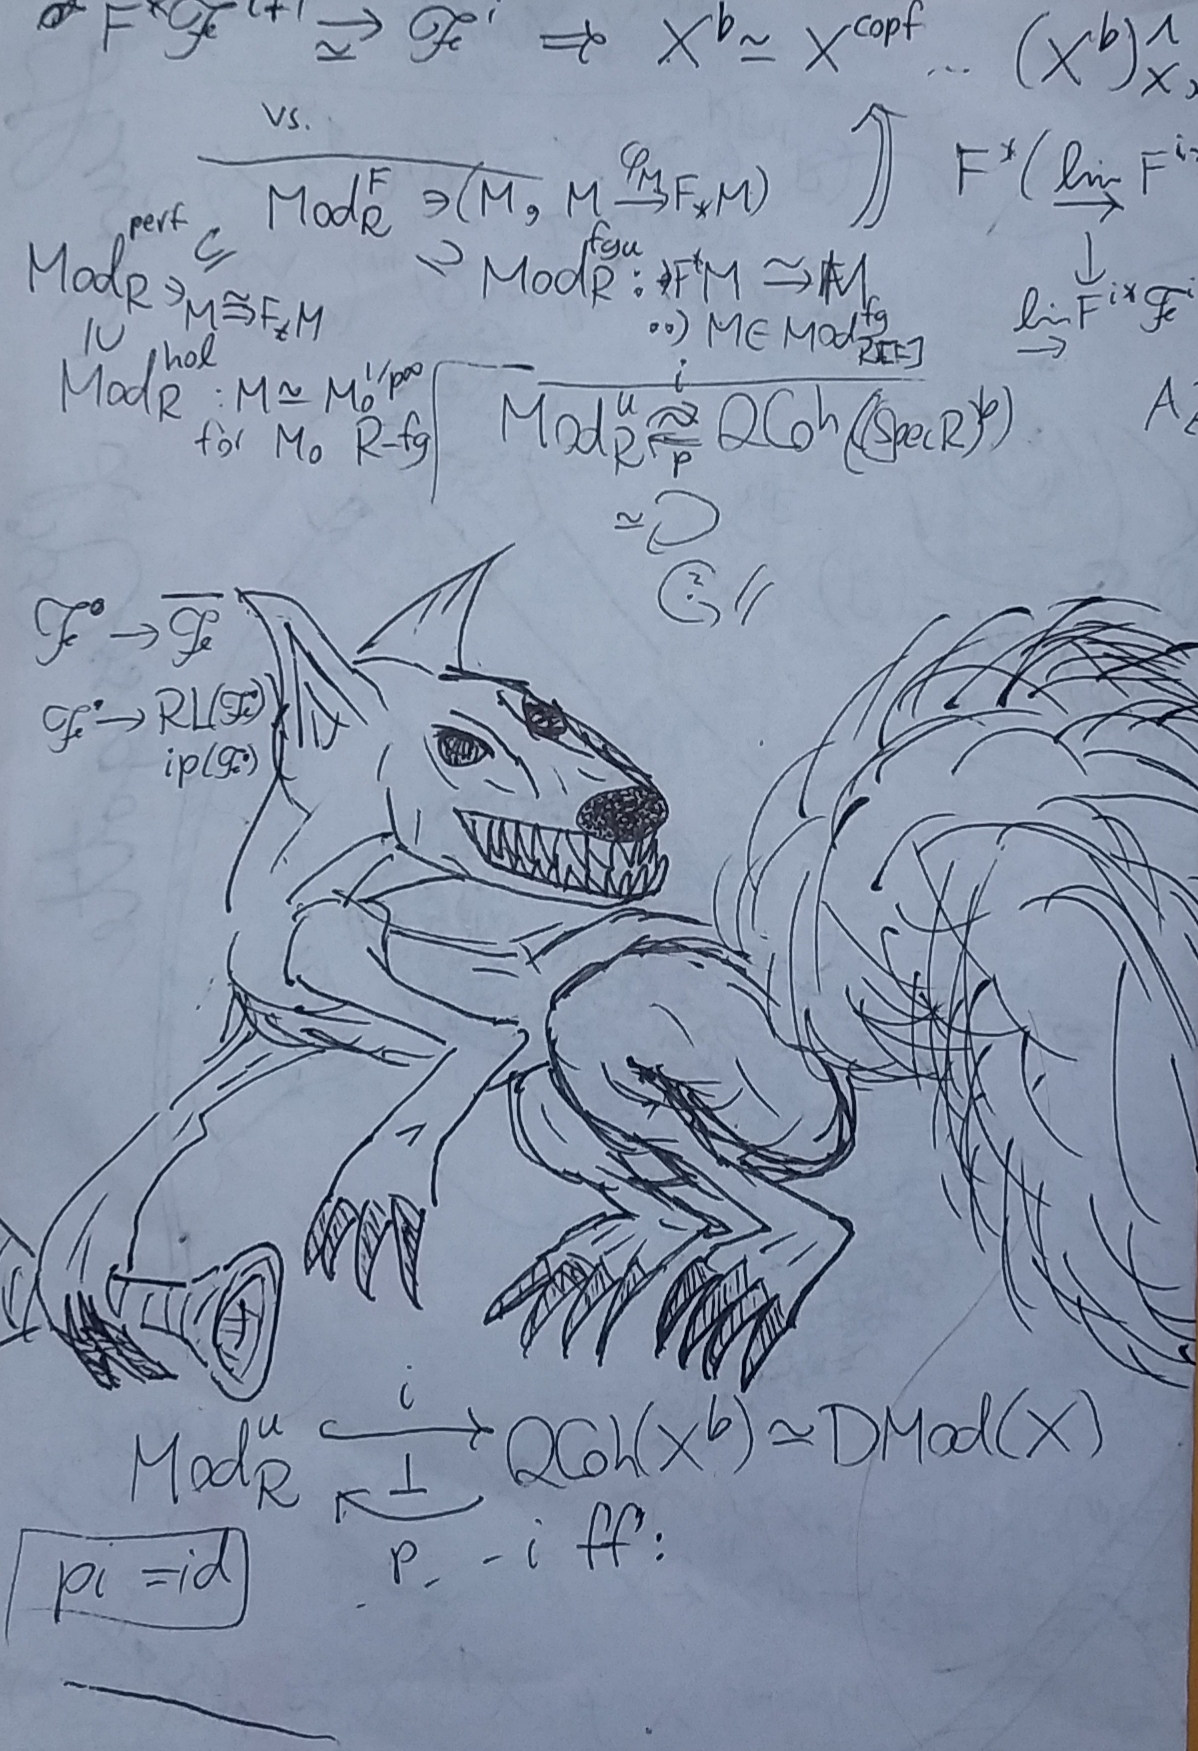 F*ℱ^{i+1} ⥲ ℱ^i ⇒ X^b ≃ X^{copf} ... (X^b)^∧_X
vs.
Mod_R^F ∋ (M, M →^{φ_M} F_*M)
F*(lim→ F^i
Mod_R^{perf} ∋ M ≅ F_*M
Mod_R^{fgu} : F*M ≃→ M
∘∘) M ∈ Mod^{fg}_{R[F]}
lim→ F^{i*}ℱ^i
Mod_R^{hol} : M ≃ M_0^{1/p∞}
for M_0 R-fg
Mod_R^u ⇄ QCoh((Spec R)^b)
i
p
≃ D
?
ℱ^• → ℱ̅
ℱ^• → RL(ℱ^•)
ip(ℱ^•)
i
Mod_R^u ↪ QCoh(X^b) ≃ DMod(X)
⊥
p - i ff:
pi = id